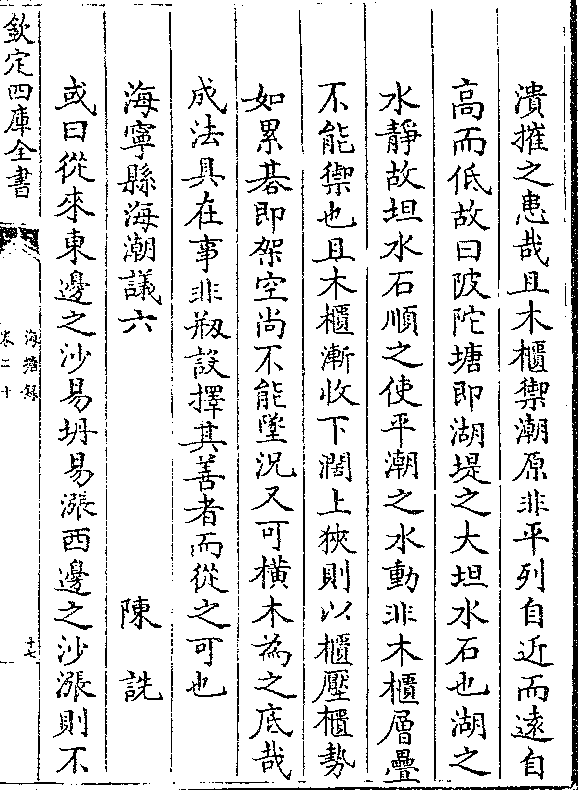 潰摧之患哉且木櫃禦潮原非平列自近而遠自
高而低故曰陂陀塘即湖堤之大坦水石也湖之
水靜故坦水石順之使平潮之水動非木櫃層疊
不能禦也且木櫃漸收下濶上狹則以櫃壓櫃勢
如累碁即架空尚不能墜況又可橫木為之底哉
成法具在事非剏設擇其善者而從之可也
海寧縣海潮議六 陳詵
或曰從來東邊之沙易坍易漲西邊之沙漲則不
欽定四庫全書
海塘錄
卷二十
十七